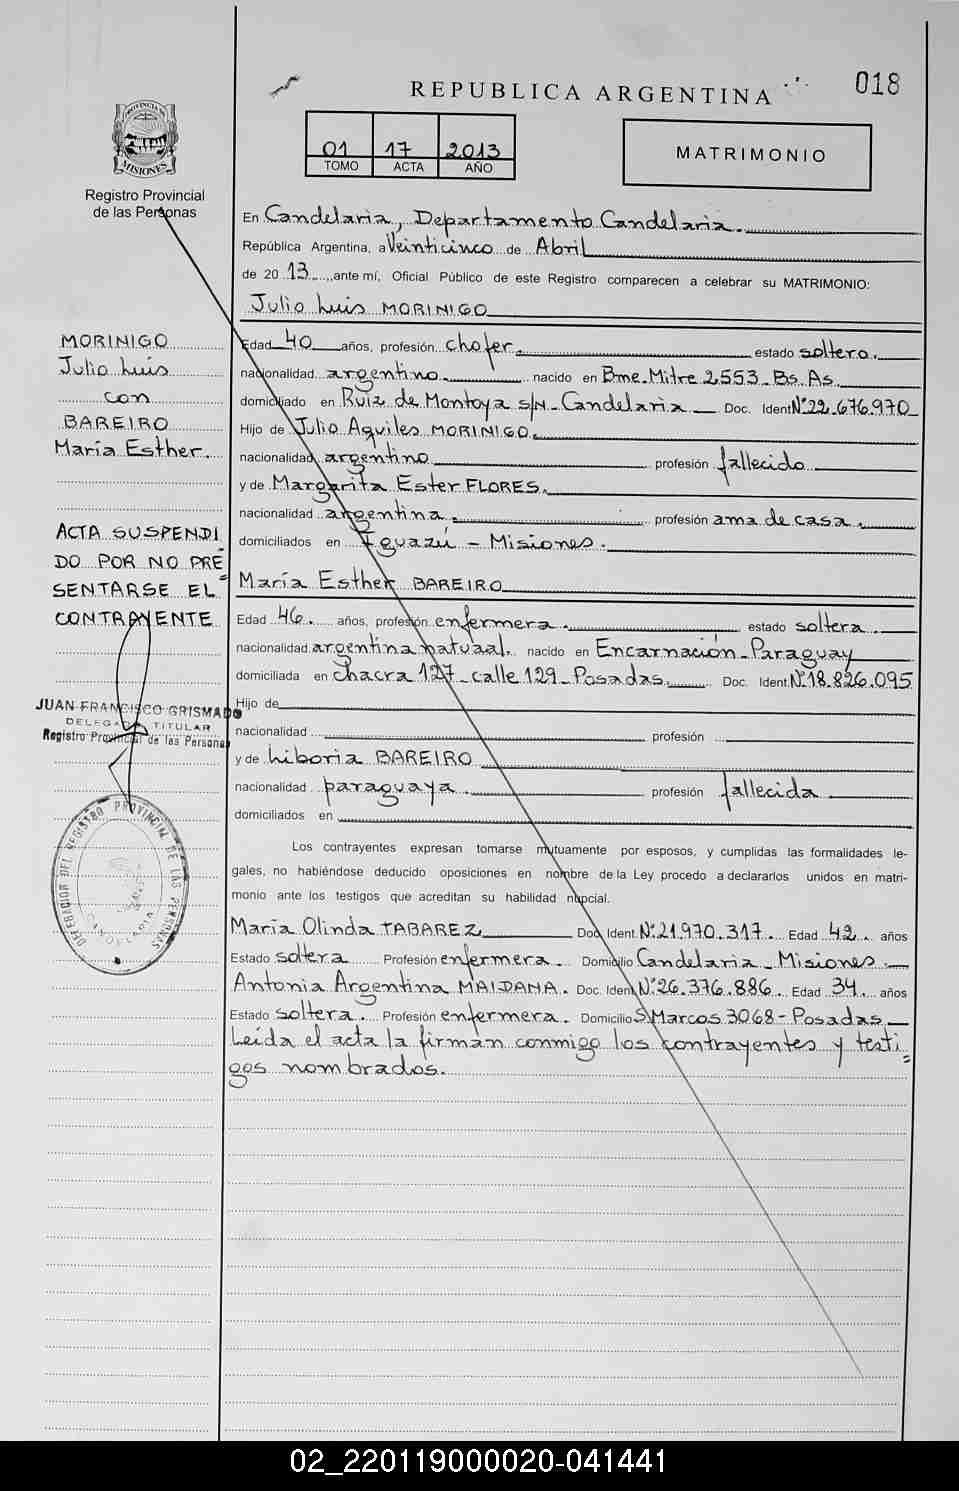 018
REPUBLICA ARGENTINA
PROVINCIA DE
MISIONES
Registro Provincial
de las Personas
01 17 2013
TOMO ACTA AÑO
MATRIMONIO
En Candelaria, Departamento Candelaria.
República Argentina, a Veinticinco de Abril
de 20 13 ante mí, Oficial Público de este Registro comparecen a celebrar su MATRIMONIO:
Julio Luis MORINIGO
Edad 40 años, profesión chofer. estado soltero.
nacionalidad argentino. nacido en Bme. Mitre 2553_Bs. As.
domiciliado en Ruiz de Montoya s/N_Candelaria Doc. Ident. Nº 22.676.970
Hijo de Julio Aquiles MORINIGO.
nacionalidad argentino profesión fallecido
y de Margarita Ester FLORES.
nacionalidad argentina. profesión ama de casa.
domiciliados en Iguazú - Misiones.
María Esther BAREIRO
Edad 46. años, profesión enfermera. estado soltera.
nacionalidad argentina natural. nacido en Encarnación_Paraguay
domiciliada en Chacra 127_calle 129_Posadas. Doc. Ident. Nº 18.826.095
Hijo de
nacionalidad profesión
y de Liboria BAREIRO
nacionalidad paraguaya. profesión fallecida
domiciliados en
Los contrayentes expresan tomarse mutuamente por esposos, y cumplidas las formalidades le-
gales, no habiéndose deducido oposiciones en nombre de la Ley procedo a declararlos unidos en matri-
monio ante los testigos que acreditan su habilidad nupcial.
María Olinda TABAREZ Doc. Ident. Nº 21.970.317. Edad 42. años
Estado soltera Profesión enfermera. Domicilio Candelaria_Misiones.
Antonia Argentina MAIDANA. Doc. Ident. Nº 26.376.886. Edad 34. años
Estado soltera. Profesión enfermera. Domicilio S. Marcos 3068-Posadas
Leída el acta la firman conmigo los contrayentes y testi=
gos nombrados.
MORINIGO
Julio Luis
con
BAREIRO
María Esther.
ACTA SUSPENDI
DO POR NO PRE=
SENTARSE EL
CONTRAYENTE
JUAN FRANCISCO GRISMADO
DELEGADO TITULAR
Registro Provincial de las Personas
DELEGACION DEL REGISTRO PROVINCIAL DE LAS PERSONAS
CANDELARIA
02_220119000020-041441